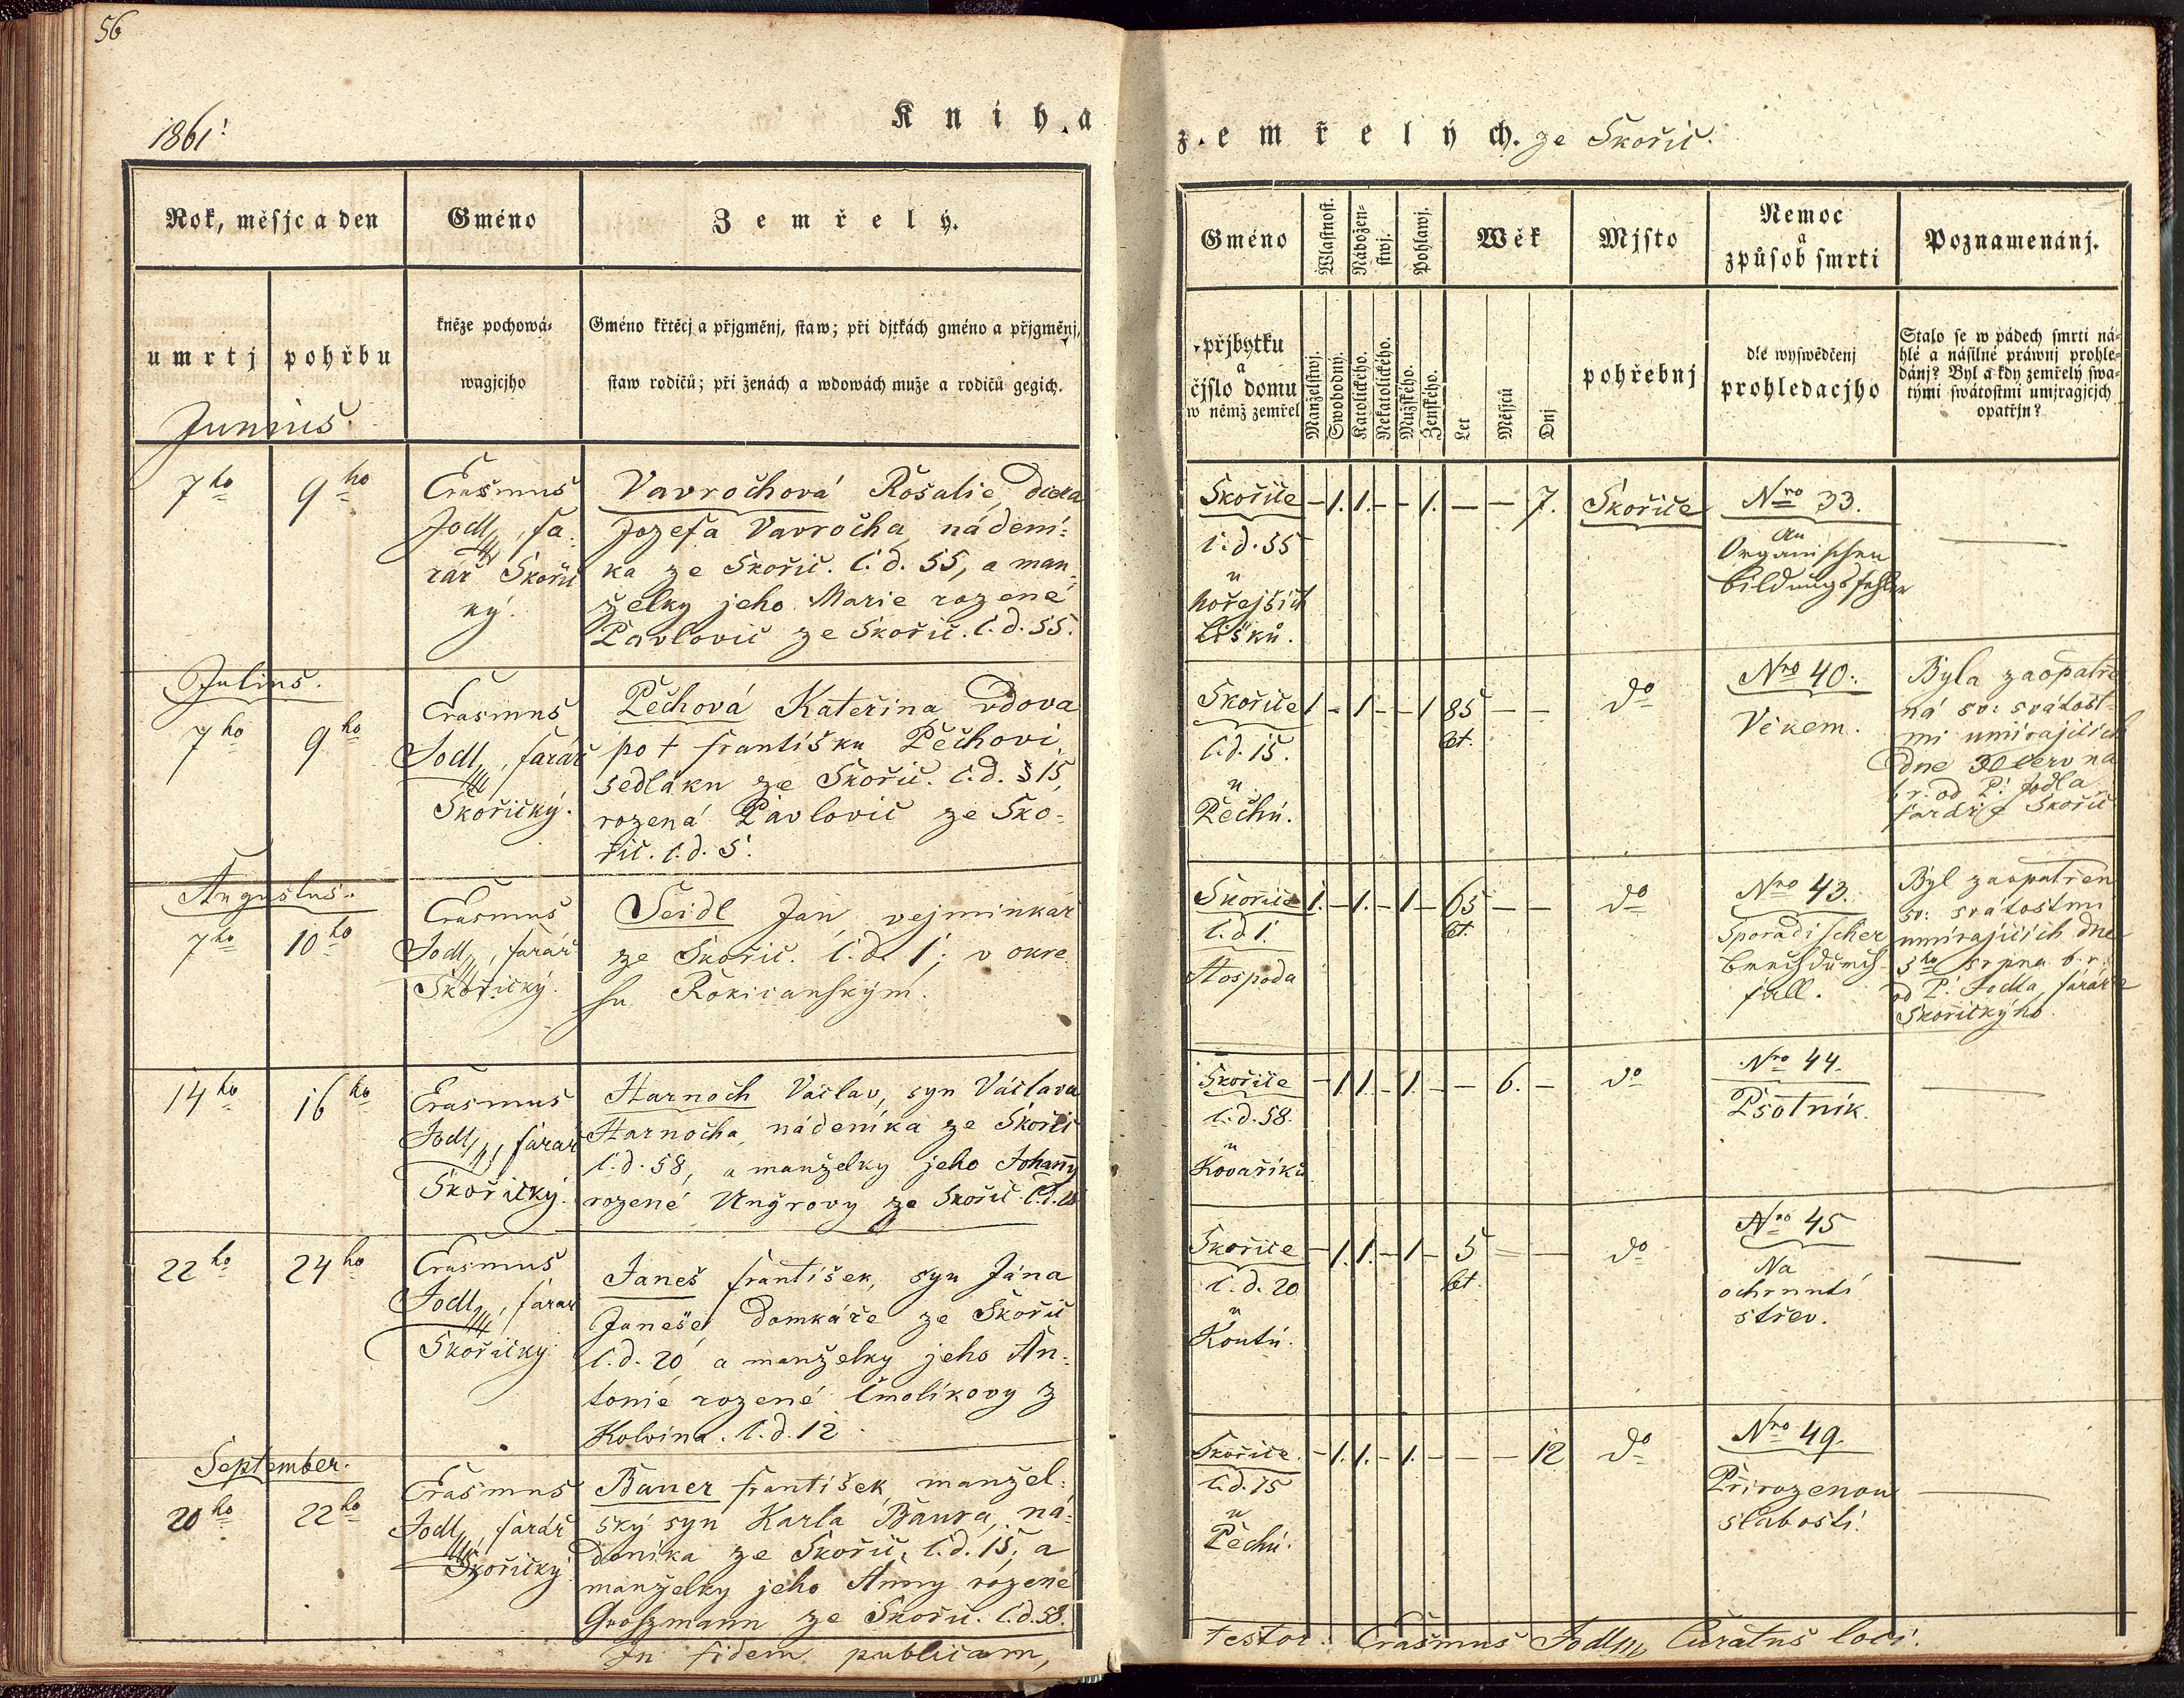 56
1861!
Kniha
zemřelých. ze Skořic.
Rok, měsjc a den
Gméno
Zemřelý.
umrtj
pohřbu
kněze pochowá-
wagjcjho
Gméno křtěcj a přjgměnj, staw; při djtkách gméno a přjgměnj,
staw rodičů; při ženách a wdowách muže a rodičů gegich.
Junius.
7ho
9ho
Erasmus
Jodl, fa-
rář Skořič
ký.
Vavročhová Rosalie, dcera
Jozefa Vavročha, nádení-
ka ze Skořic. č. d. 55, a man-
želky jeho Marie rozené
Pavlovič ze Skořic. č. d. 55.
Julius.
7ho
9ho
Erasmus
Jodl, farář
Skořický.
Pěchová Kateřina vdova
po † Františku Pěchovi,
sedláku ze Skořic. č. d. 15,
rozená Pavlovič ze Sko-
řic. č. d. 5.
Augustus.
7ho
10ho
Erasmus
Jodl, farář
Skořický.
Seidl Jan, vejminkář
ze Skořic. č. d. 1; v okre-
su Rokicanským.
14ho
16ho
Erasmus
Jodl, farář
Skořický.
Harnoch Václav, syn Václava
Harnocha, nádeníka ze Skořic
č. d. 58, a manželky jeho Johanny
rozené Ungrovy ze Skořic.
22ho
24ho
Erasmus
Jodl, farář
Skořický
Janeš František, syn Jána
Janeše, domkáře ze Skořic
č. d. 20, a manželky jeho An-
tonie rozené Čmolíkovy z
Kolvína. č. d. 12.
September.
20ho
22ho
Erasmus
Jodl, farář
Skořický
Bauer František, manžel-
ský syn Karla Baura, ná-
deníka ze Skořic, č. d. 15, a
manželky jeho Anny rozené
Groszmann ze Skořic. č. d. 58.
In fidem publicam,
Gméno
přjbytku
a
čjslo domu
w němž zemřel
Wlastnost.
Nábožen-
stwj.
Pohlawj.
Wěk
Mjsto
pohřebnj
Nemoc
a
způsob smrti
dle wyswědčenj
prohledacjho
Poznamenánj.
Stalo se w pádech smrti ná-
hlé a násilné práwnj prohle-
dánj? Byl a kdy zemřelý swa-
tými swátostmi umjragjcjch
opatřjn?
Manželstwj.
Swobodný.
Katolického.
Nekatolického.
Mužského.
Ženského.
Let
Měsjců
Dnj
Skořice
č. d. 55
u
hořejších
Lišků.
– 1. 1. – – 1. – – 7.
Skořice
Nro 33.
An
Organischen
bildungsfehler
—
Skořice
č. d. 15.
u
Pěchů.
1 – 1 – – 1 85 – –
let.
do
Nro 40.
Věkem.
Byla zaopatře-
ná sv: svátost-
mi umírajících
dne 30 června
b. r. od P: Jodla
faráře Skořic
Skořice
č. d 1.
Hospoda
1. – 1. – 1 – 65 – –
let.
do
Nro 43.
Sporadischer
brechdurch-
fall.
Byl zaopatřen
sv: svátostmi
umírajících dne
5ho srpna b. r.
od P: Jodla, faráře
Skořickýho.
Skořice
č. d. 58.
u
Kovaříků
– 1 1. – 1. – – 6. –
do
Nro 44.
Psotník.
—
Skořice
č. d. 20
u
Koutů.
– 1. 1. – 1 – 5 – –
let.
do
Nro 45
Na
ochrnutí
střev.
—
Skořice.
č. d. 15
u
Pěchů.
– 1. 1. – 1. – – – 12
do
Nro 49.
Přirozenou
slabostí.
—
testor: Erasmus Jodl, Curatus loci.